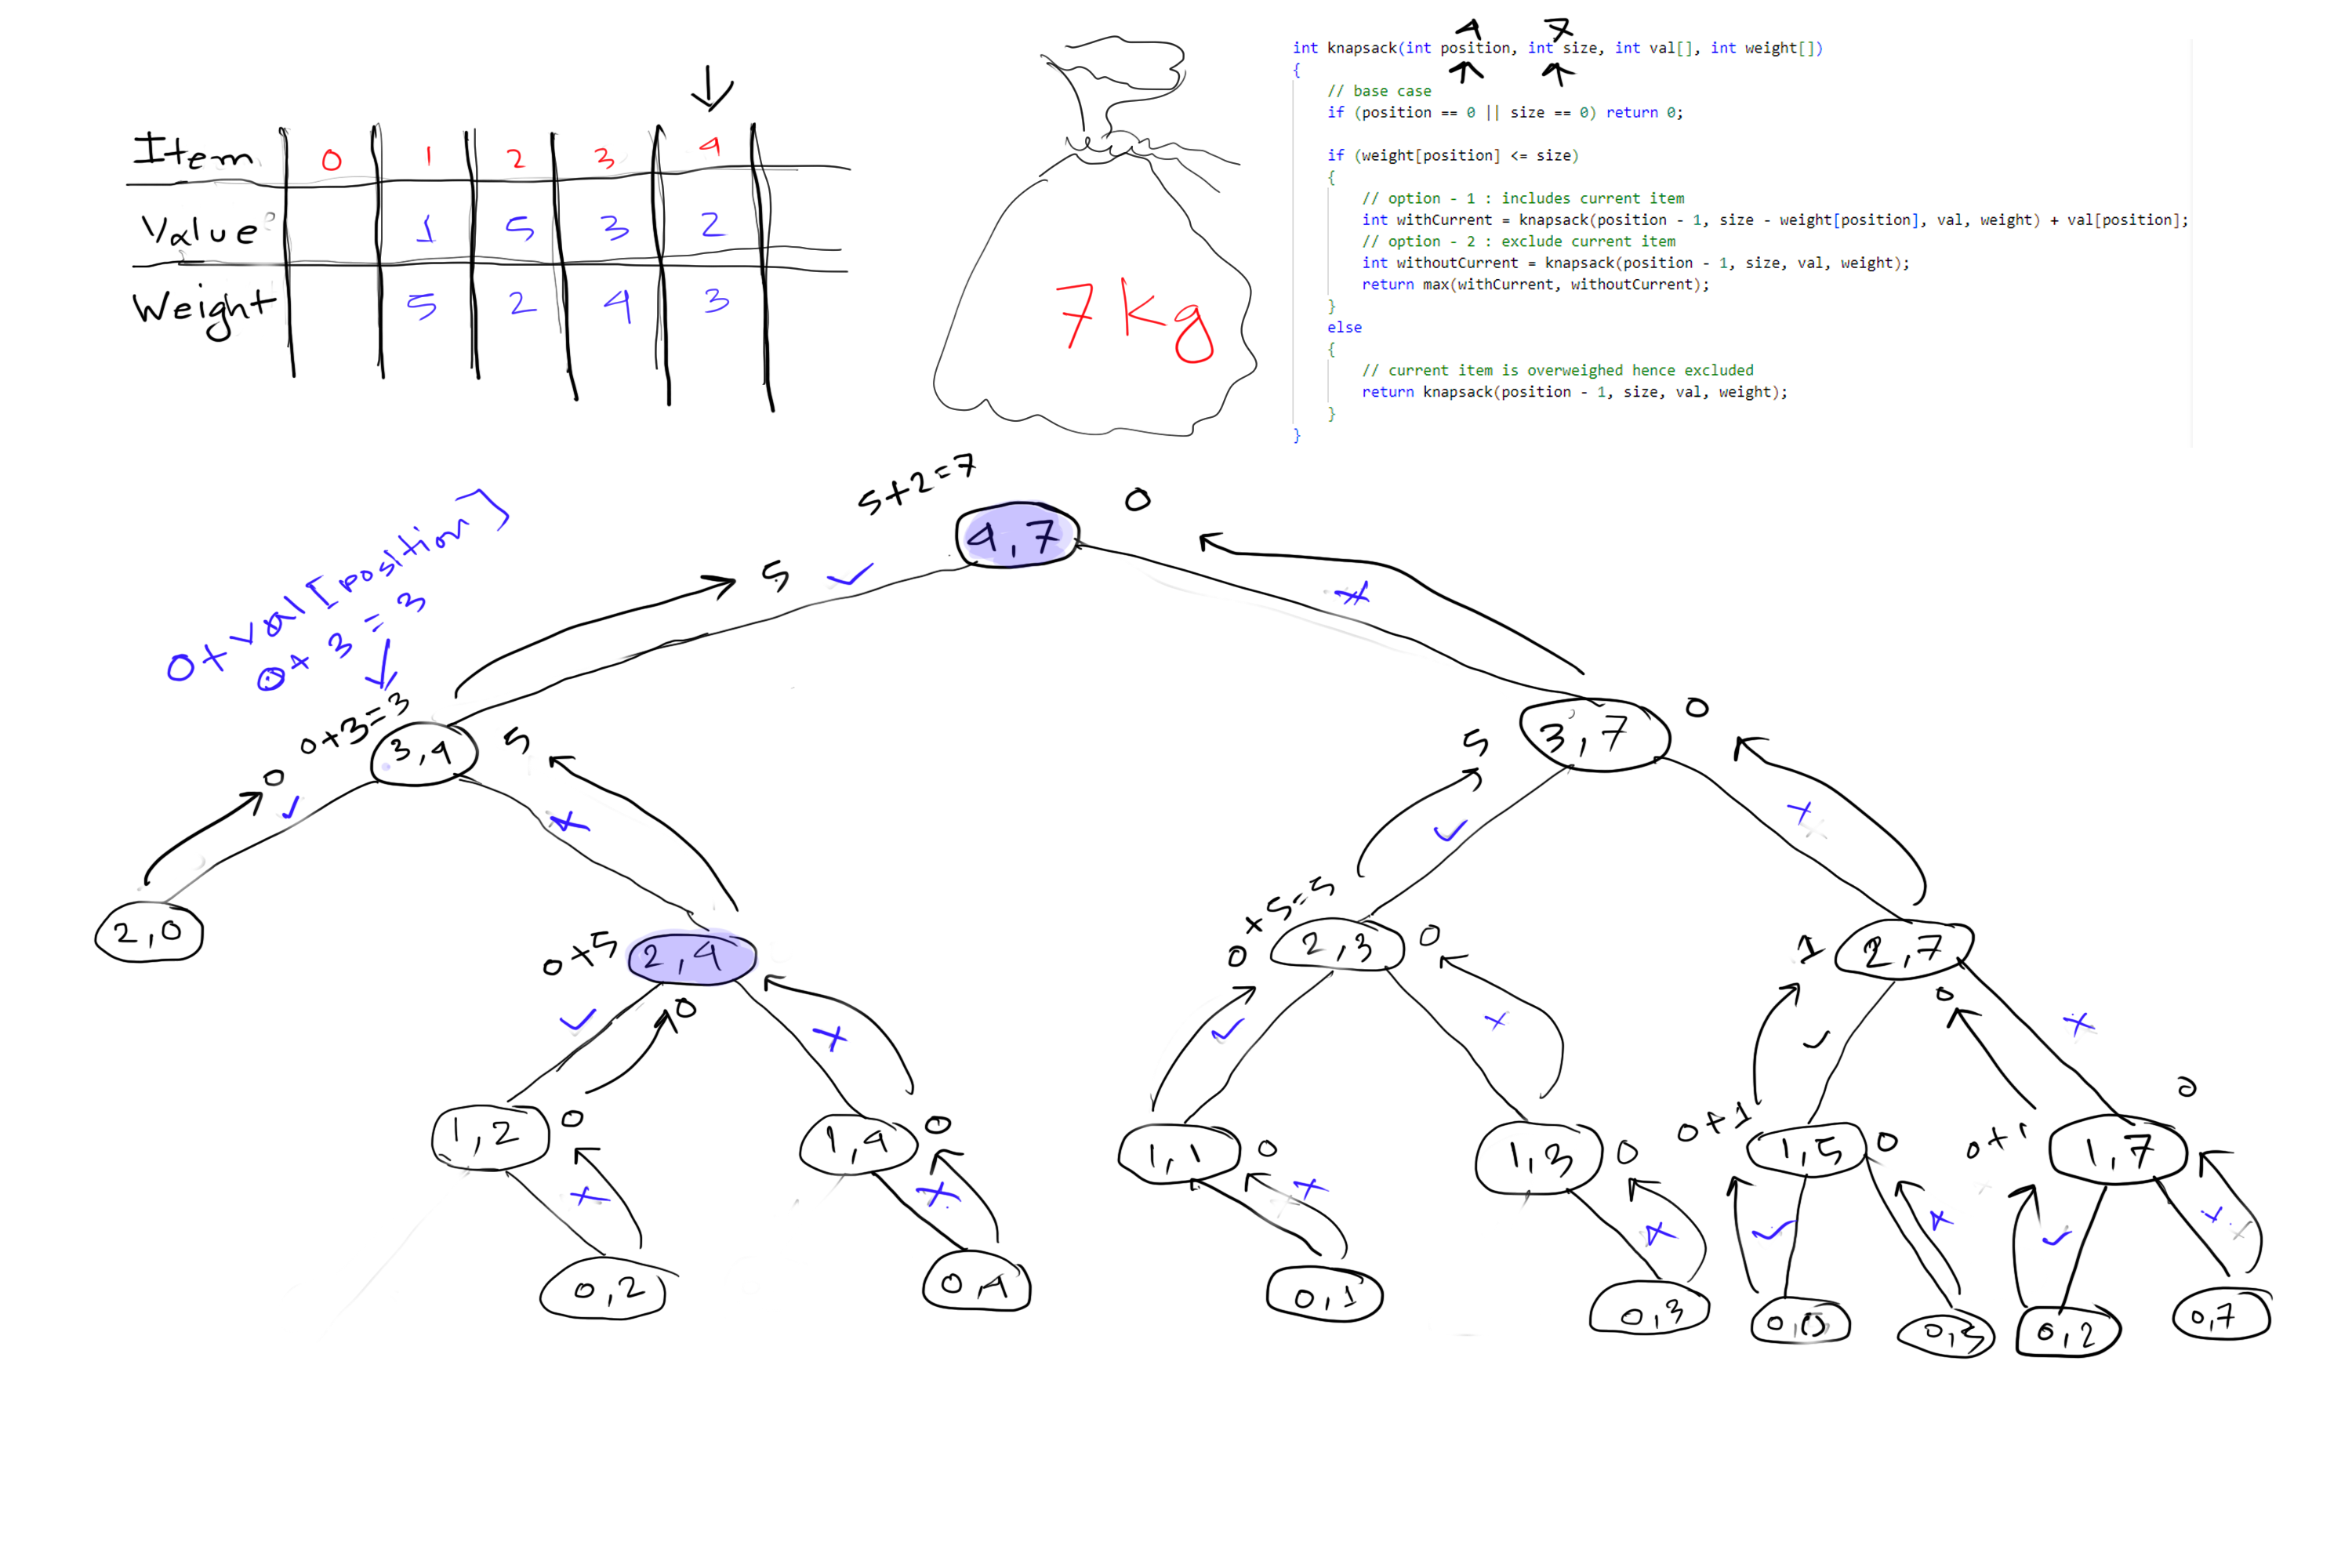 Item 0 1 2 3 4
Value 1 5 3 2
Weight 5 2 4 3
7 kg
4 7
int knapsack(int position, int size, int val[], int weight[])
{
// base case
if (position == 0 || size == 0) return 0;
if (weight[position] <= size)
{
// option - 1 : includes current item
int withCurrent = knapsack(position - 1, size - weight[position], val, weight) + val[position];
// option - 2 : exclude current item
int withoutCurrent = knapsack(position - 1, size, val, weight);
return max(withCurrent, withoutCurrent);
}
else
{
// current item is overweighed hence excluded
return knapsack(position - 1, size, val, weight);
}
}
5+2=7 4,7 0
5
0+val[position]
0+3=3
0+3=3 3,4 5
0
5 3,7 0
2,0
0+5 2,4
0
0+5=5
0 2,3 0
1 2,7
0
1,2 0
1,4 0
1,1 0
1,3 0
0+1 1,5 0
0+1 1,7 0
0,2
0,4
0,1
0,3
0,0
0,2
0,7